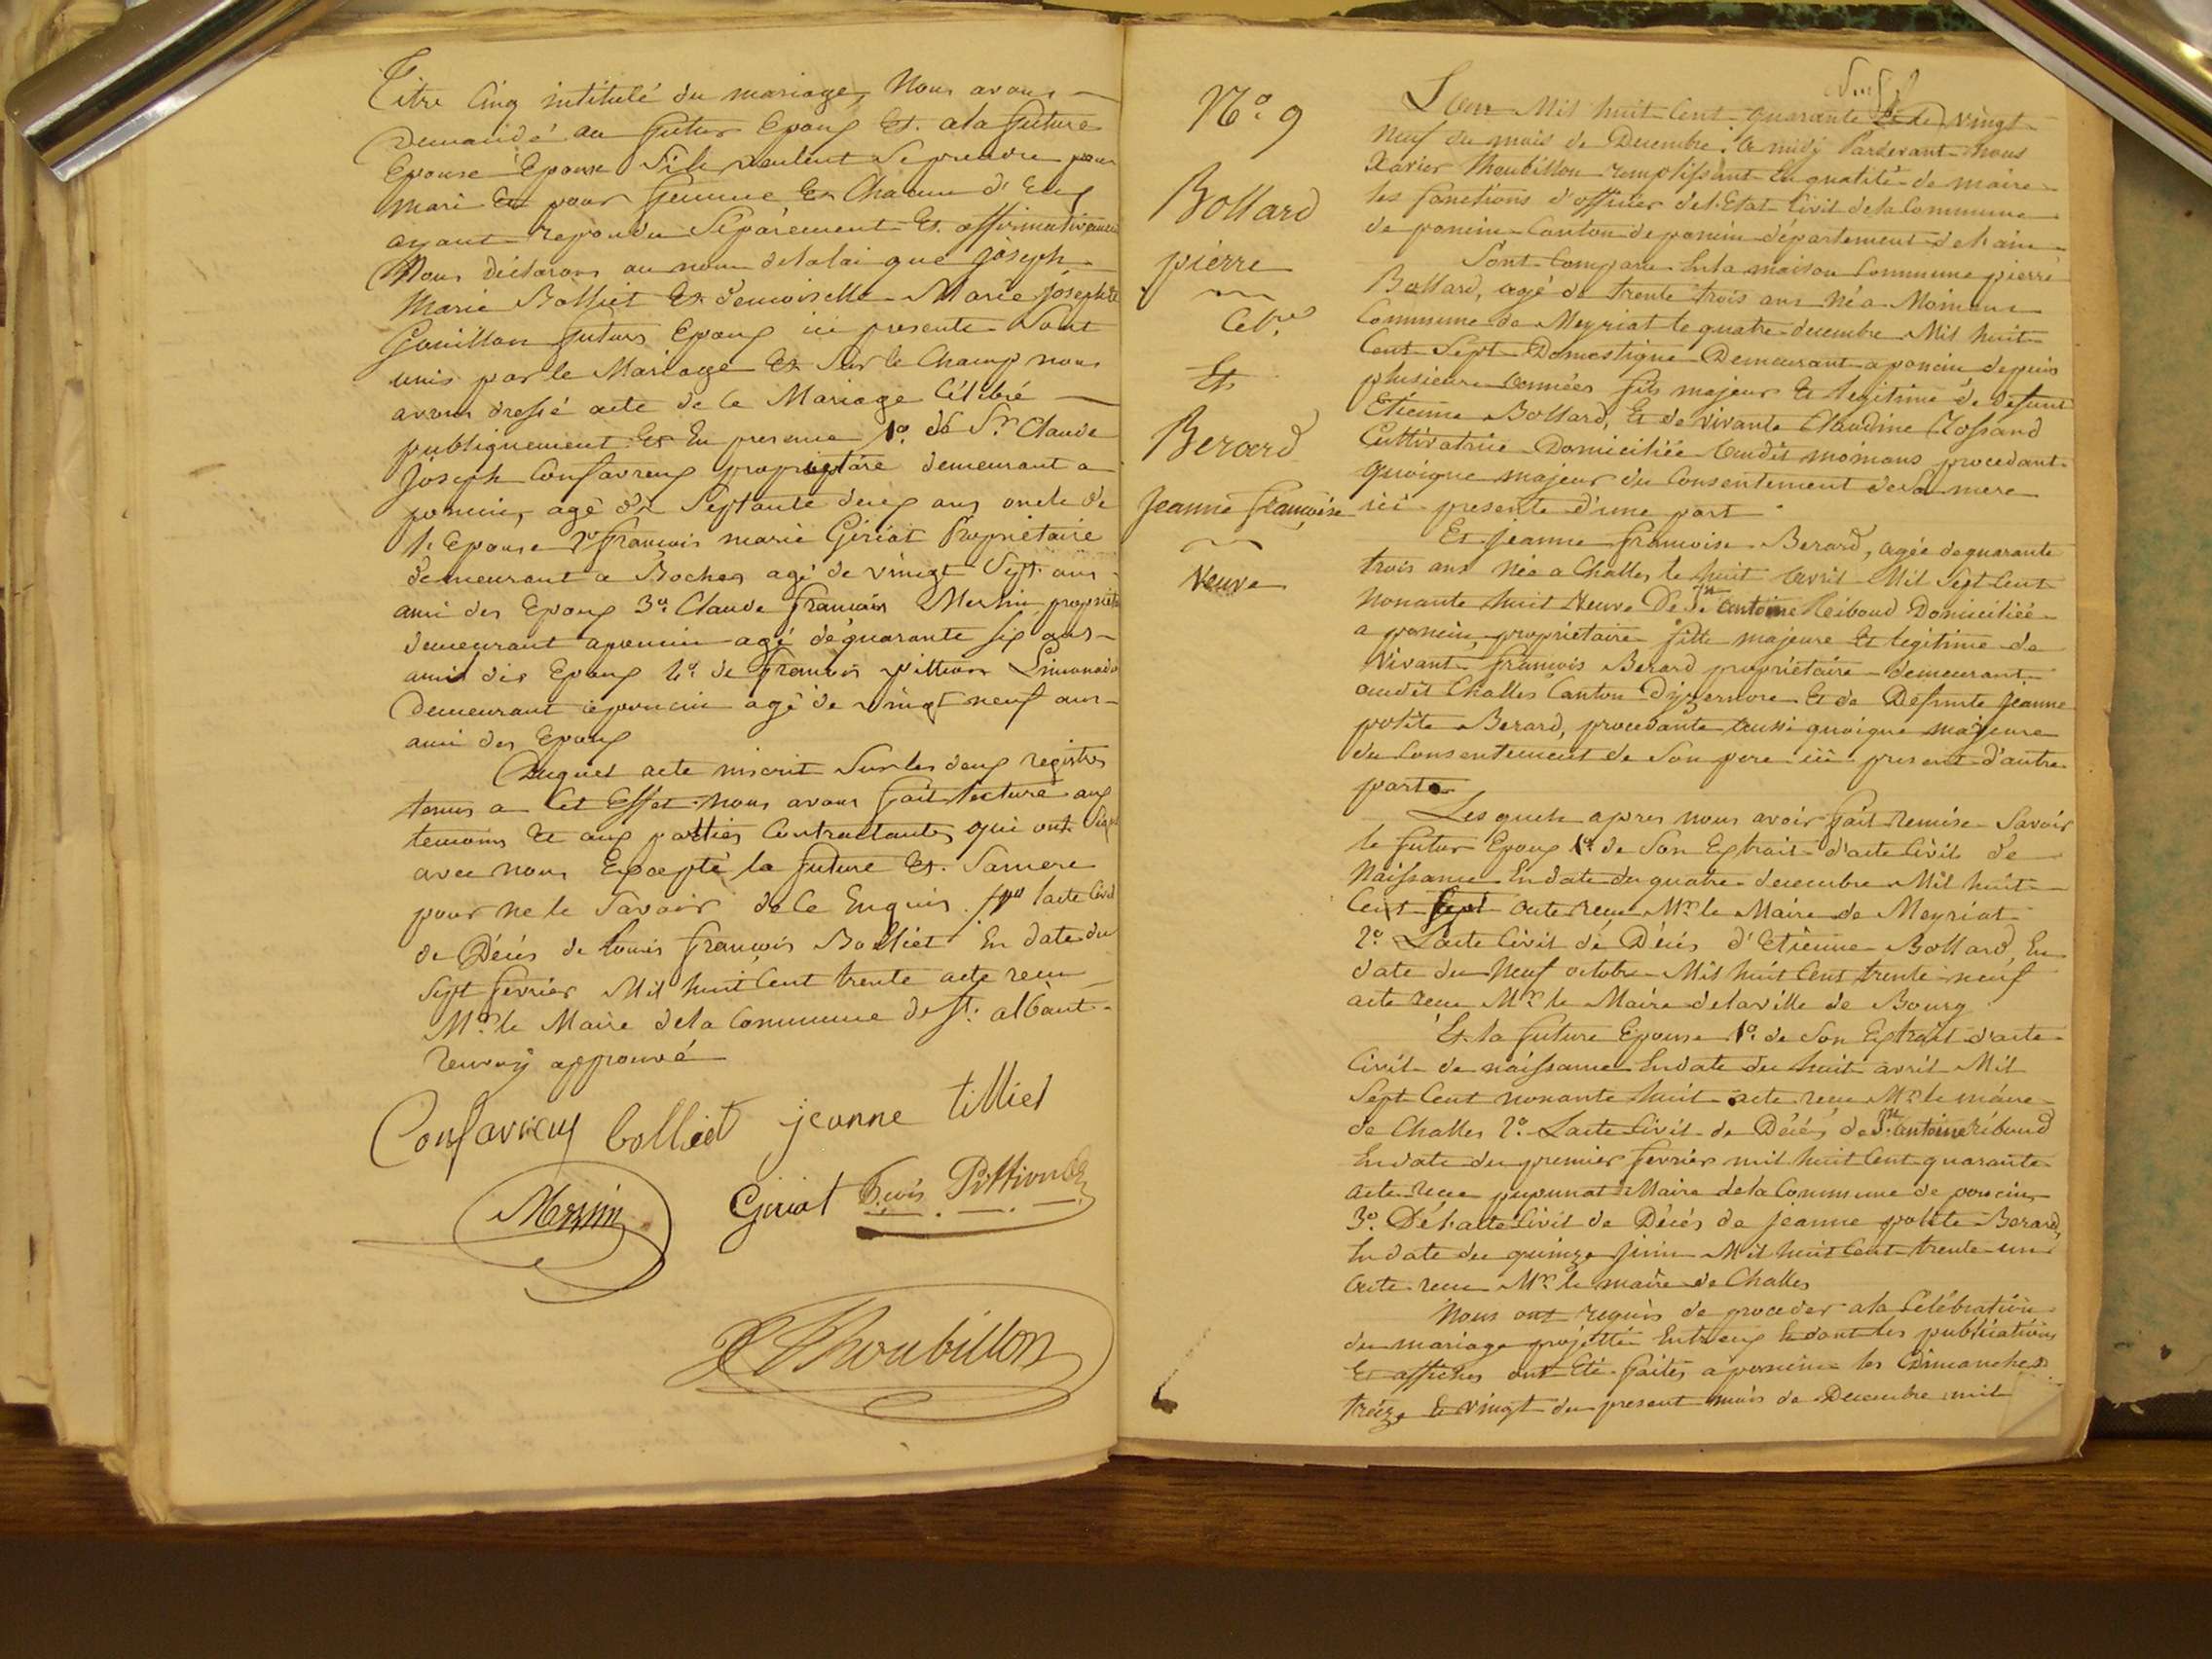 Titre Cinq intitulé du mariage, Nous avons
Demandé au futur Epoux Et. ala future
Epouse Epouse S'ils veulent Se prendre pour
mari Et pour femme Et Chacun d'Eux
ayant repondu Séparement Et. affirmativement
Nous déclarons au nom delaloi que joseph
Marie Bolliet Et demoiselle Marie josephte
Gouillon futurs Epoux ici presents Sont
unis par le Mariage Et Sur le Champ nous
avons dressé acte de Ce Mariage Célébré
publiquement Et En presence 1o. de Sr. Claude
joseph Confavreux propriétaire demeurant a
poncin, agé de Septante deux ans oncle de
l'Epouse 2o françois marie Giriat Propriétaire
demeurant a Boches agé de vingt Sept ans
ami des Epoux 3o. Claude françois Mermin propriét
demeurant aponcin agé de quarante Six ans
ami des Epoux 4o. de françois pittion Limonadier
Demeurant aponcin agé de vingt neuf ans
ami des Epoux
Duquel acte inscrit Sur les deux registres
tenus a Cet Effet. nous avons fait lecture aux
temoins Et aux parties Contractantes qui ont Signé
avec nous Excepté la future Et. Samere
pour ne le Savoir de Ce Enquis. l'acte Civil
de Décès de Louis françois Bolliet En date du
Sept fevrier Mil huit Cent trente acte recu
Mr. le Maire dela Commune de St. alban
renvoy approuvé
Confavreux bolliet jeanne tilliet
Mermin Giriat F.cois Pittion
X Thoubillon
No. 9
Bollard
pierre
Celre
Et
Berard
Jeanne françoise
Veuve
L'an Mil huit Cent quarante Et le vingt
Neuf du mois de Decembre, a midi Pardevant nous
Xavier Thoubillon remplissant En qualité de maire
les fonctions d'officier del'Etat Civil dela Commune
de poncin Canton de poncin département del'ain
Sont Comparu En la maison Commune pierre
Bollard, agé de trente trois ans Né a Momans
Commune de Meyriat le quatre decembre Mil huit
Cent Sept Domestique Demeurant a poncin depuis
plusieurs années fils majeur Et legitime de defunt
Etienne Bollard, Et de vivante Claudine Tossand
Cultivatrice Domiciliée audit momans procedant
quoique majeur du Consentement de Sa mere
ici presente d'une part
Et jeanne françoise Berard, agée de quarante
trois ans née a Challes le huit avril Mil Sept Cent
Nonante huit Veuve De Jn antoine Riboud Domiciliée
a poncin, propriétaire fille majeure Et legitime de
Vivant françois Berard propriétaire demeurant
audit Challes Canton D'yzernore Et de Defunte jeanne
polite Berard, procedante aussi quoique majeure
du Consentement de Son pere ici present d'autre
part
Lesquels apres nous avoir fait Remise Savoir
le futur Epoux 1o. de Son Extrait d'acte Civil de
Naissance En date du quatre decembre Mil huit
Cent Sept acte recu Mr. le Maire de Meyriat
2o. L'acte Civil de Décès d'Etienne Bollard, En
date du Neuf octobre Mil huit Cent trente neuf
acte recu Mr. le Maire delaville de Bourg
Et. la future Epouse 1o. de Son Extrait d'acte
Civil de naissance Endate du huit avril Mil
Sept Cent nonante huit acte recu Mr. le maire
de Challes 2o. L'acte Civil de Décès de Jn antoine Riboud
Endate du premier fevrier mil huit Cent quarante
acte recu pupunat Maire dela Commune de poncin
3o. De l'acte Civil de Décès de jeanne polite Berard,
En date du quinze juin Mil huit Cent trente un
acte recu Mr. le maire de Challes
Nous ont requis de proceder ala Célébration
du mariage projetté Entreux Et dont les publications
Et affiches ont Eté faites a poncin les Dimanches
treize Et vingt du present mois de Decembre mil